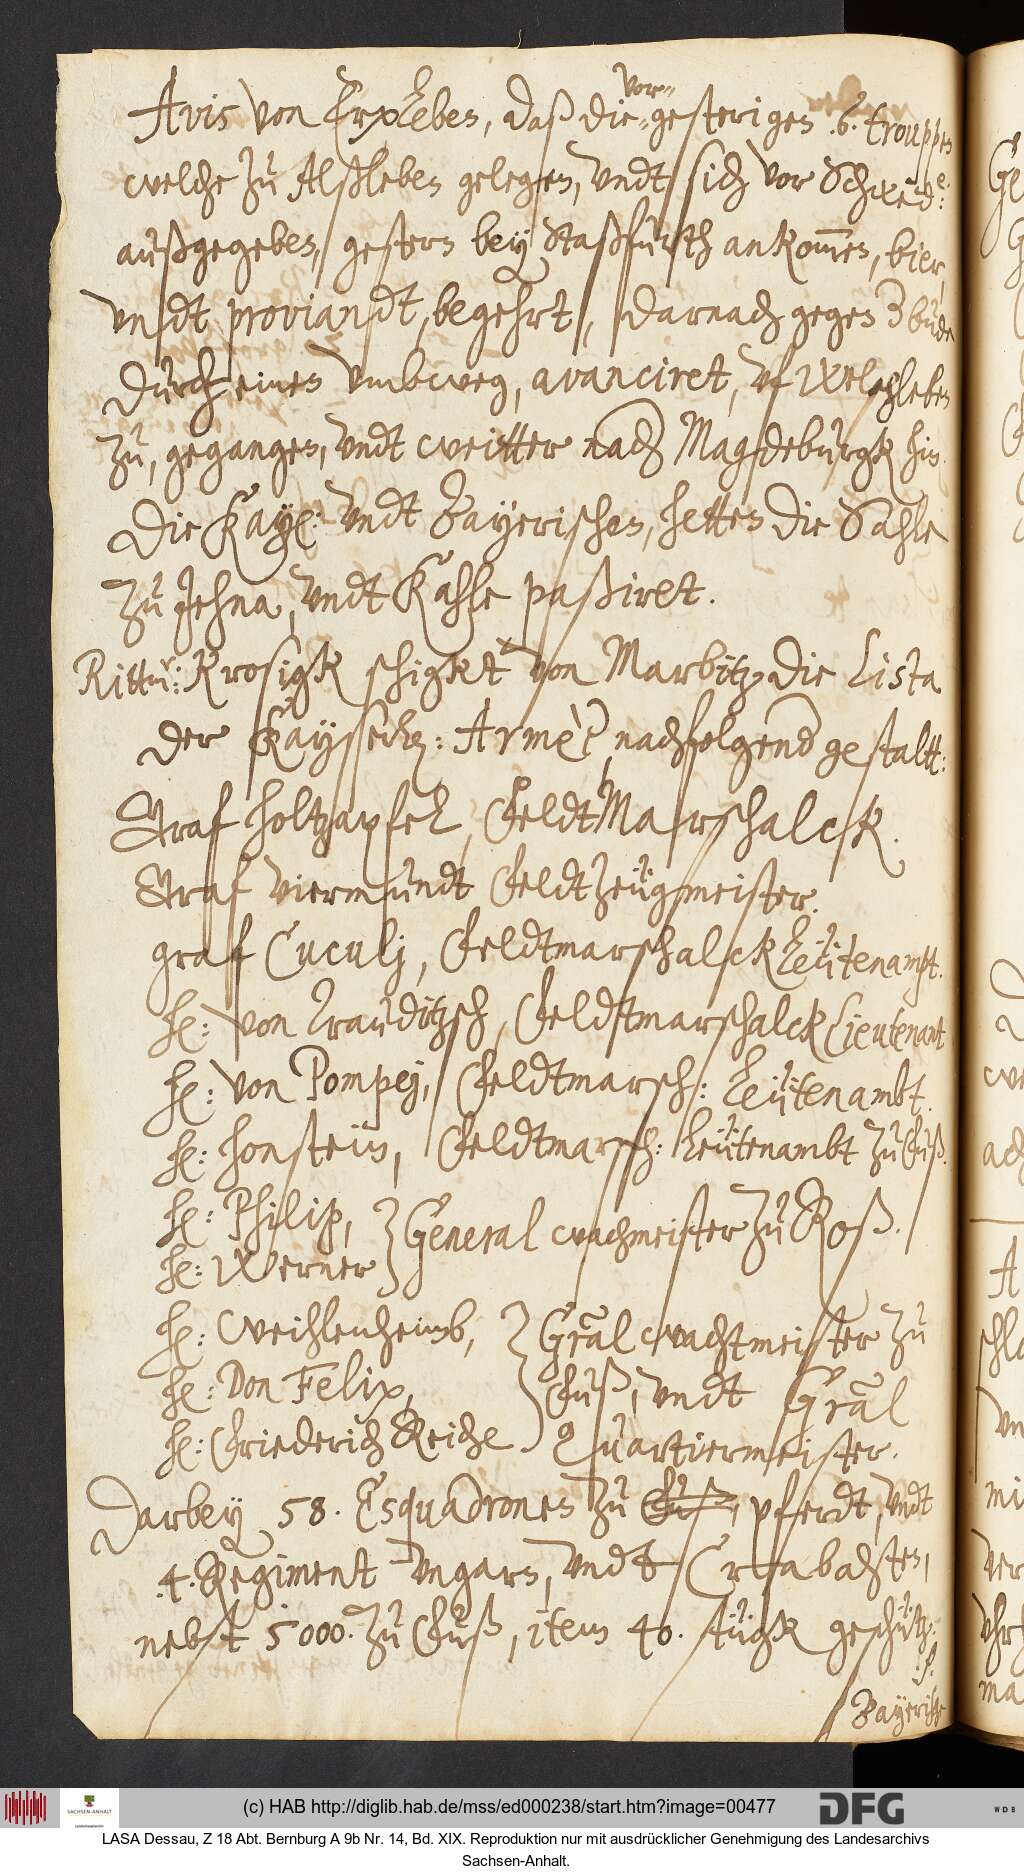 Avis von Erxleben, daß die vor-
gesterigen .6. trouppen
welche zu Alßleben gelegen, undt sich vor Schwed:
außgegeben, gestern bey Staßfurth ankommen, bier,
undt proviandt, begehrt, darnach gegen 3 bude
durch einen umbweg, avanciret, uf Welschleben
zu, gegangen, undt weitter nach Magdeburgk hin.
Die Kay: undt Bayerischen, hetten die Sahle
zu Jehna, undt Kahle paßiret.
Rittm: Krosigk schigket von Marbitz, die Lista
der Kayserl: Armèe, nachfolgend gestaltt:
Graf Holtzapfel, FeldtMarschalck.
Graf Viermundt Feldtzeugmeister.
graf Cuculj, Feldtmarschalck Leütenampt.
he: von Trauditzsch, Feldtmarschalck Lieutenant
he: von Pompej, Feldtmarsch: Leütenambt.
he: Honstein, Feldtmarsch: Leütenambt zu Fuß.
he: Philip,
he: Werner
General wachmeister zu Roß.
he: Weihlenheimb,
he: Don Felix,
he: Friederich Reiche
Gräl wachtmeister zu
Fuß, undt Gräl
Quartiermeister.
Darbey 58. Esquadronen zu Fuß, pferdt, undt
.4. Regiment Ungarn, undt Crabahten,
nebst 5000. zu Fuß, item 40. stügk geschütz.
Bayerische
(c) HAB http://diglib.hab.de/mss/ed000238/start.htm?image=00477
DFG
WDB
SACHSEN-ANHALT
LASA Dessau, Z 18 Abt. Bernburg A 9b Nr. 14, Bd. XIX. Reproduktion nur mit ausdrücklicher Genehmigung des Landesarchivs
Sachsen-Anhalt.